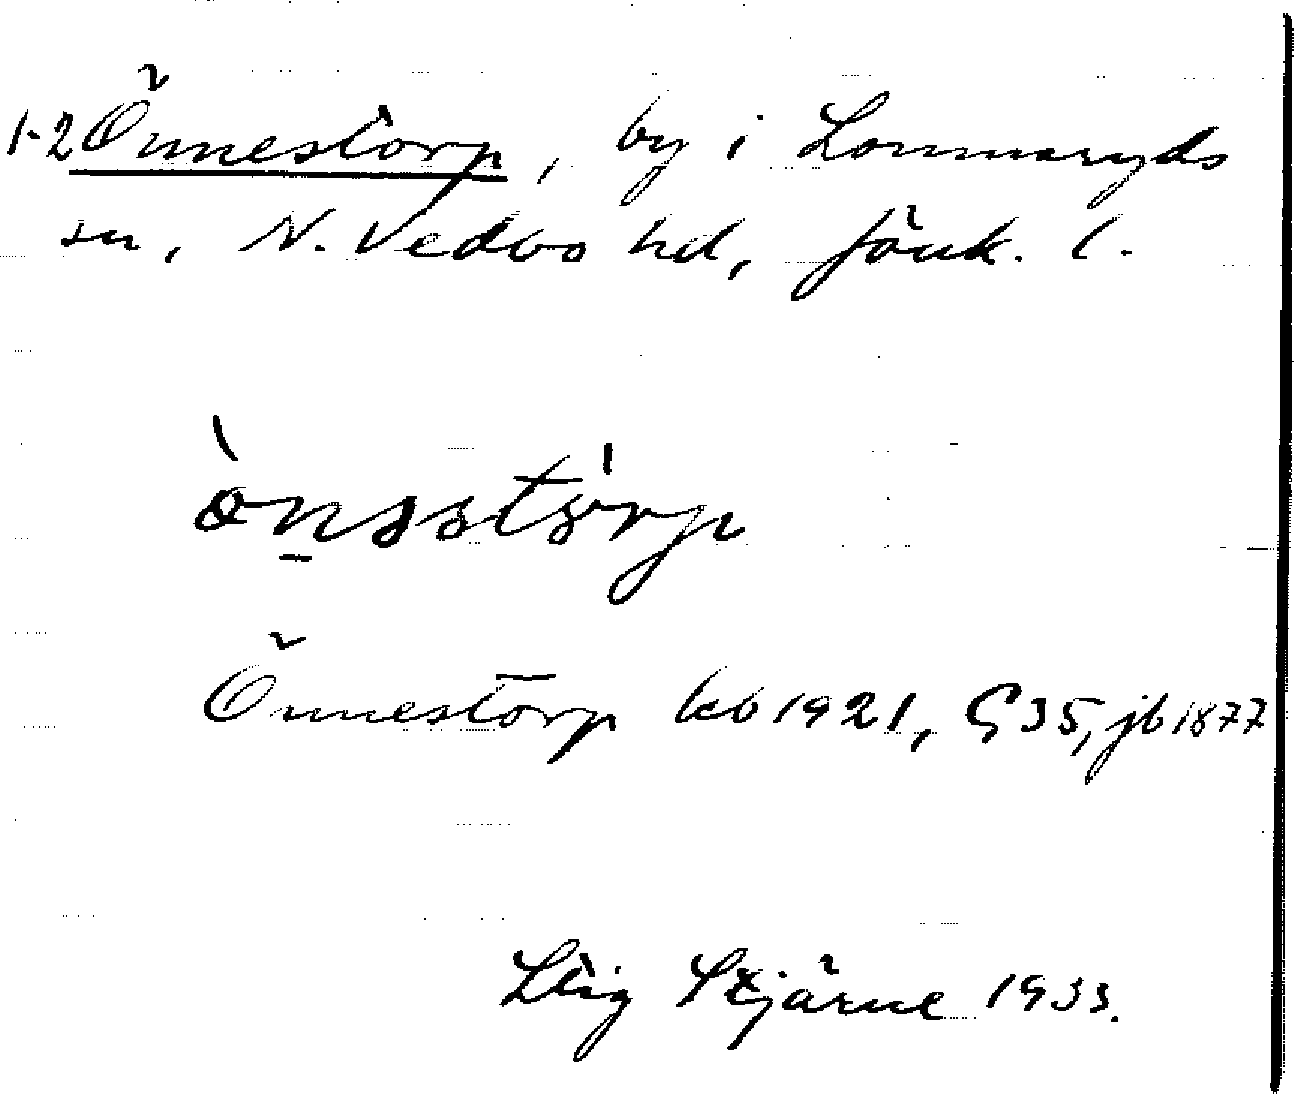 1-2 Önnestorp, by i Lommaryds
sn, N. Vedbo hd, Jönk. l.
ònsstörp
Önnestorp kb 1921, G 35, jb 1877
Stig Stjärne 1933.